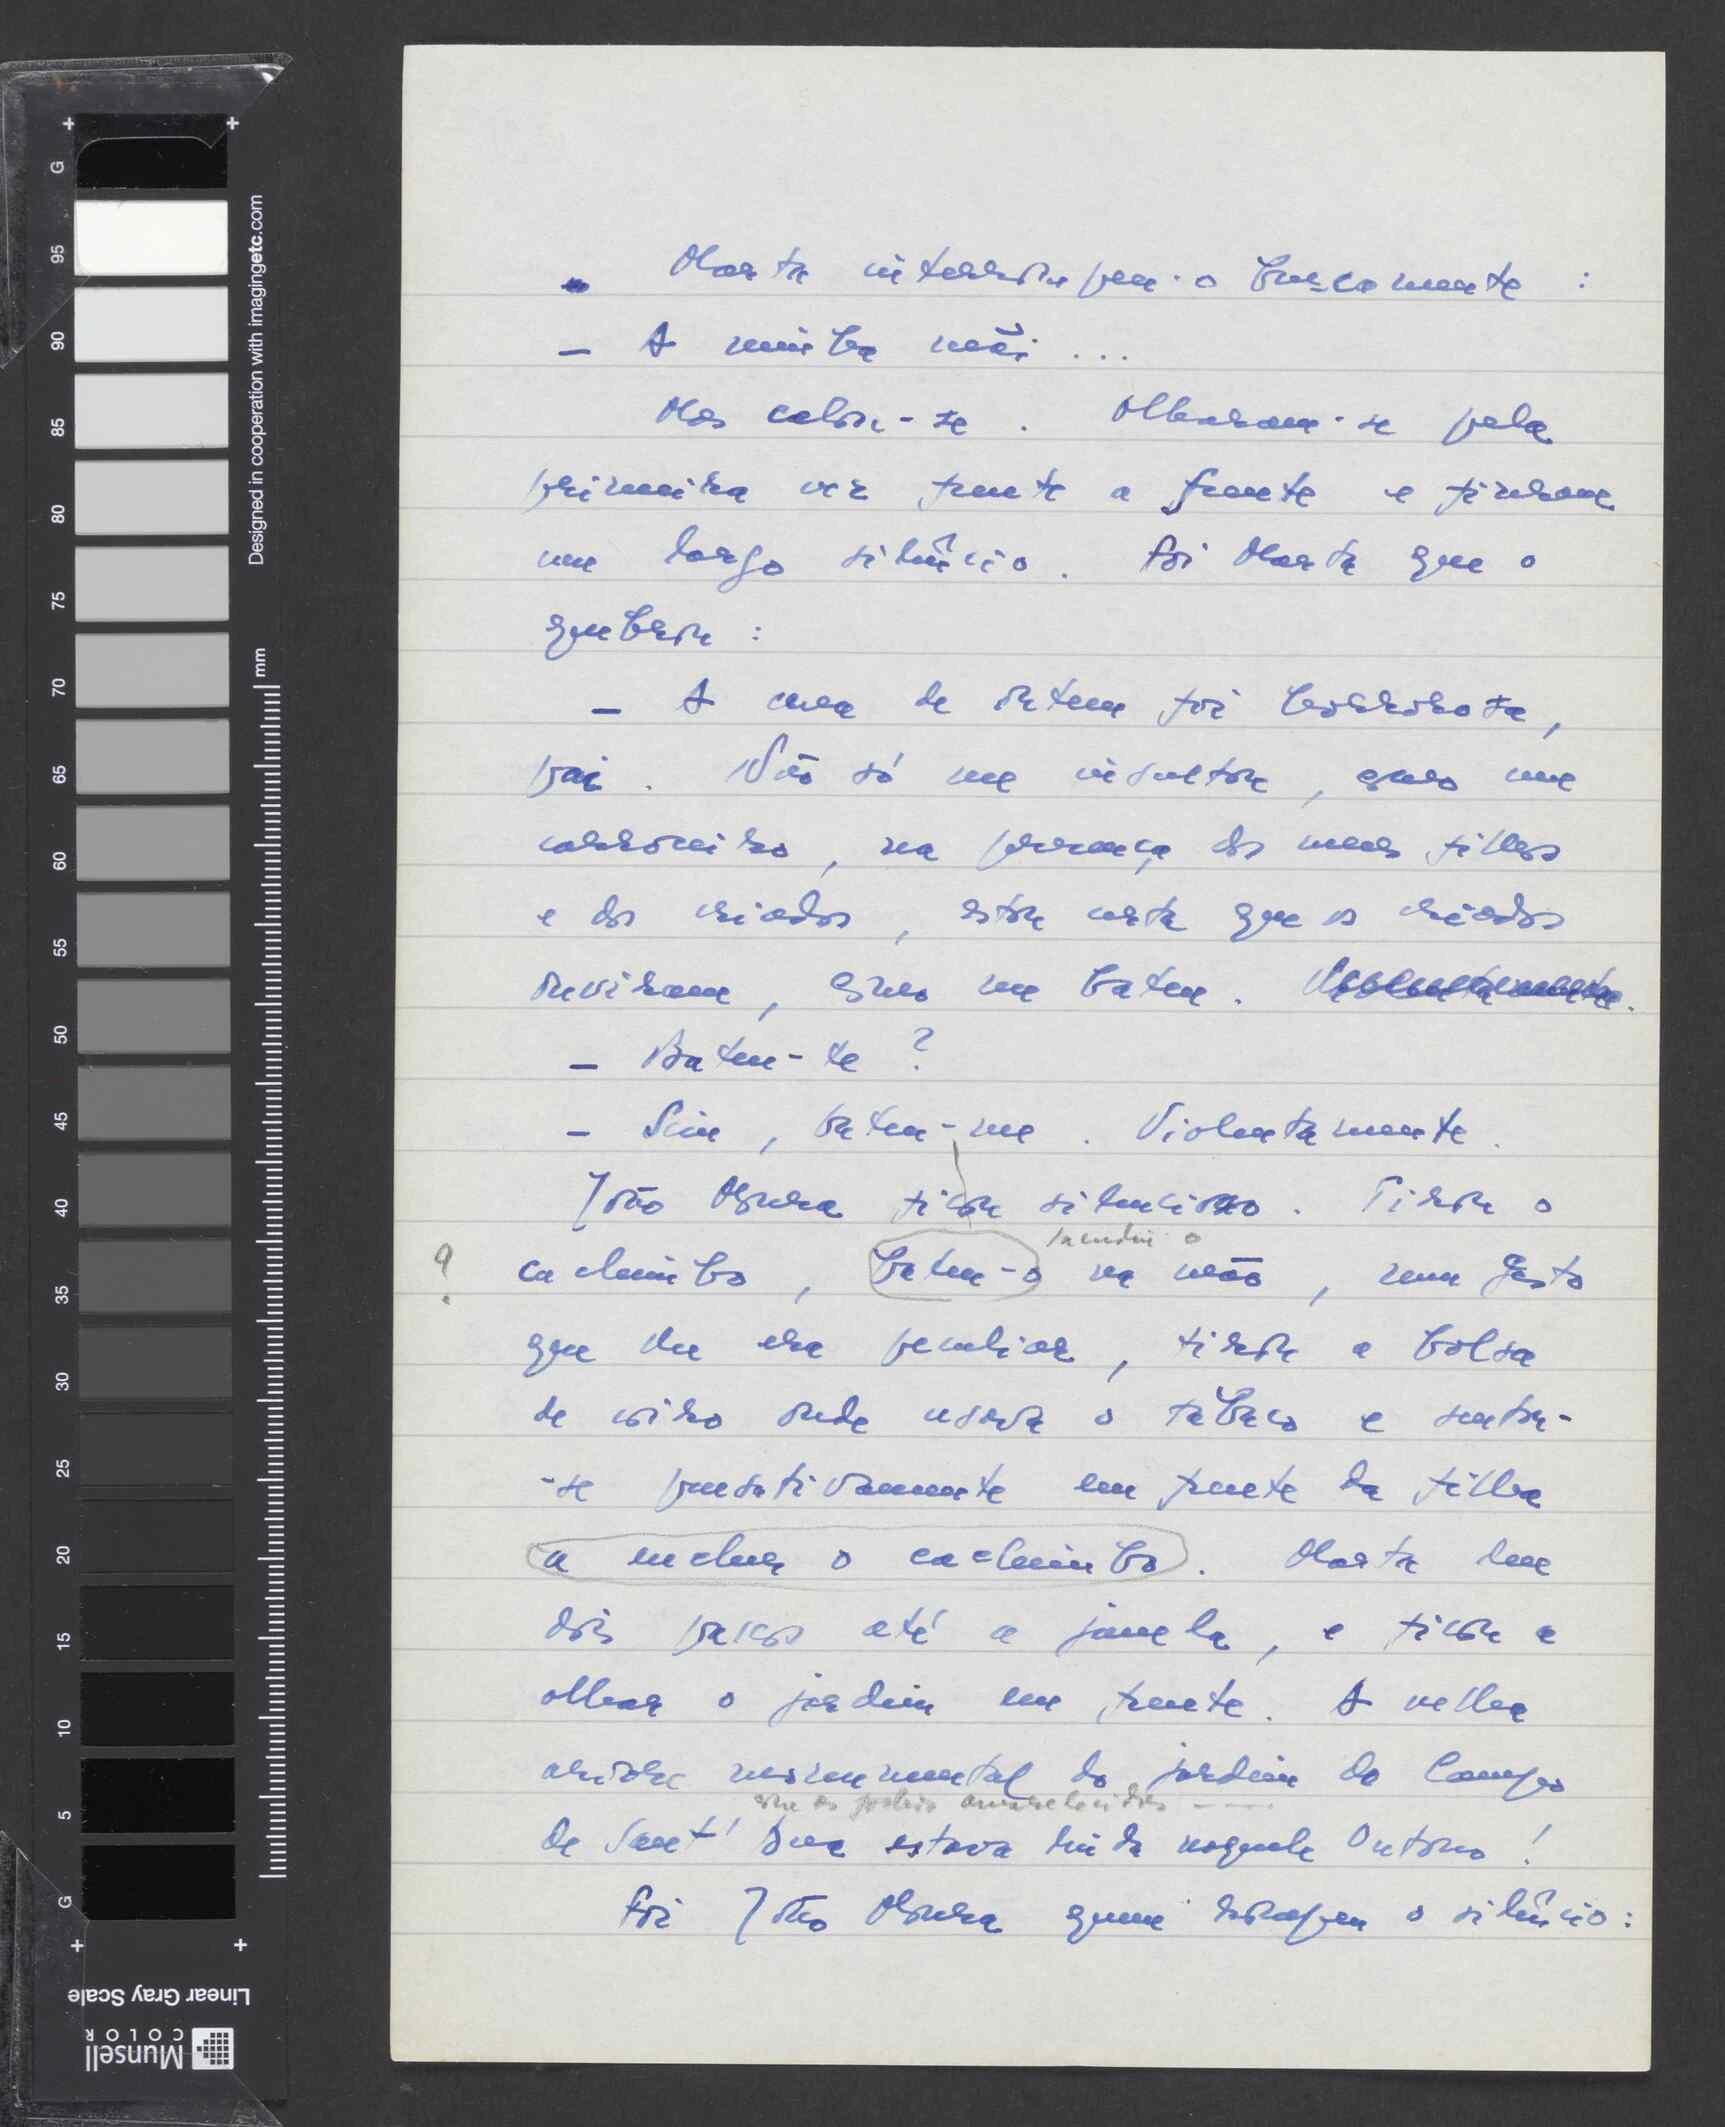 Marta interrompeu-o bruscamente :
– A minha mãi ...
Mas calou-se . Olharam-se pela
primeira vez frente a frente e fizeram
um largo silêncio . Foi Marta que o
quebrou :
– A cena de ontem foi horrorosa ,
pai . Não só me insultou , como um
carroceiro , na presença dos meus filhos
e dos criados , estou certa que os criados
ouviram , como me bateu . Violentamente .
– Bateu-te ?
– Sim , bateu-me . Violentamente .
João Moura ficou silencioso . Tirou o
sacudiu o
? cachimbo , bateu-o na mão , num gesto
que lhe era peculiar , tirou a bolsa
de coiro onde usava o tabaco e sentou-
-se pensativamente em frente da filha
a encher o cachimbo . Marta deu
dois passos até a janela , e ficou a
olhar o jardim em frente . A velha
árvore monumental do jardim do Campo
com as folhas amarelecidas ----
de Sant'Ana estava linda naquele Outono !
Foi João Moura quem rompeu o silêncio :
G 95 90 85 80 75 70 65 60 55 50 45 40 35 30 25 20 15 10 5 G
Designed in cooperation with imagingetc.com
mm
Linear Gray Scale
Munsell
COLOR